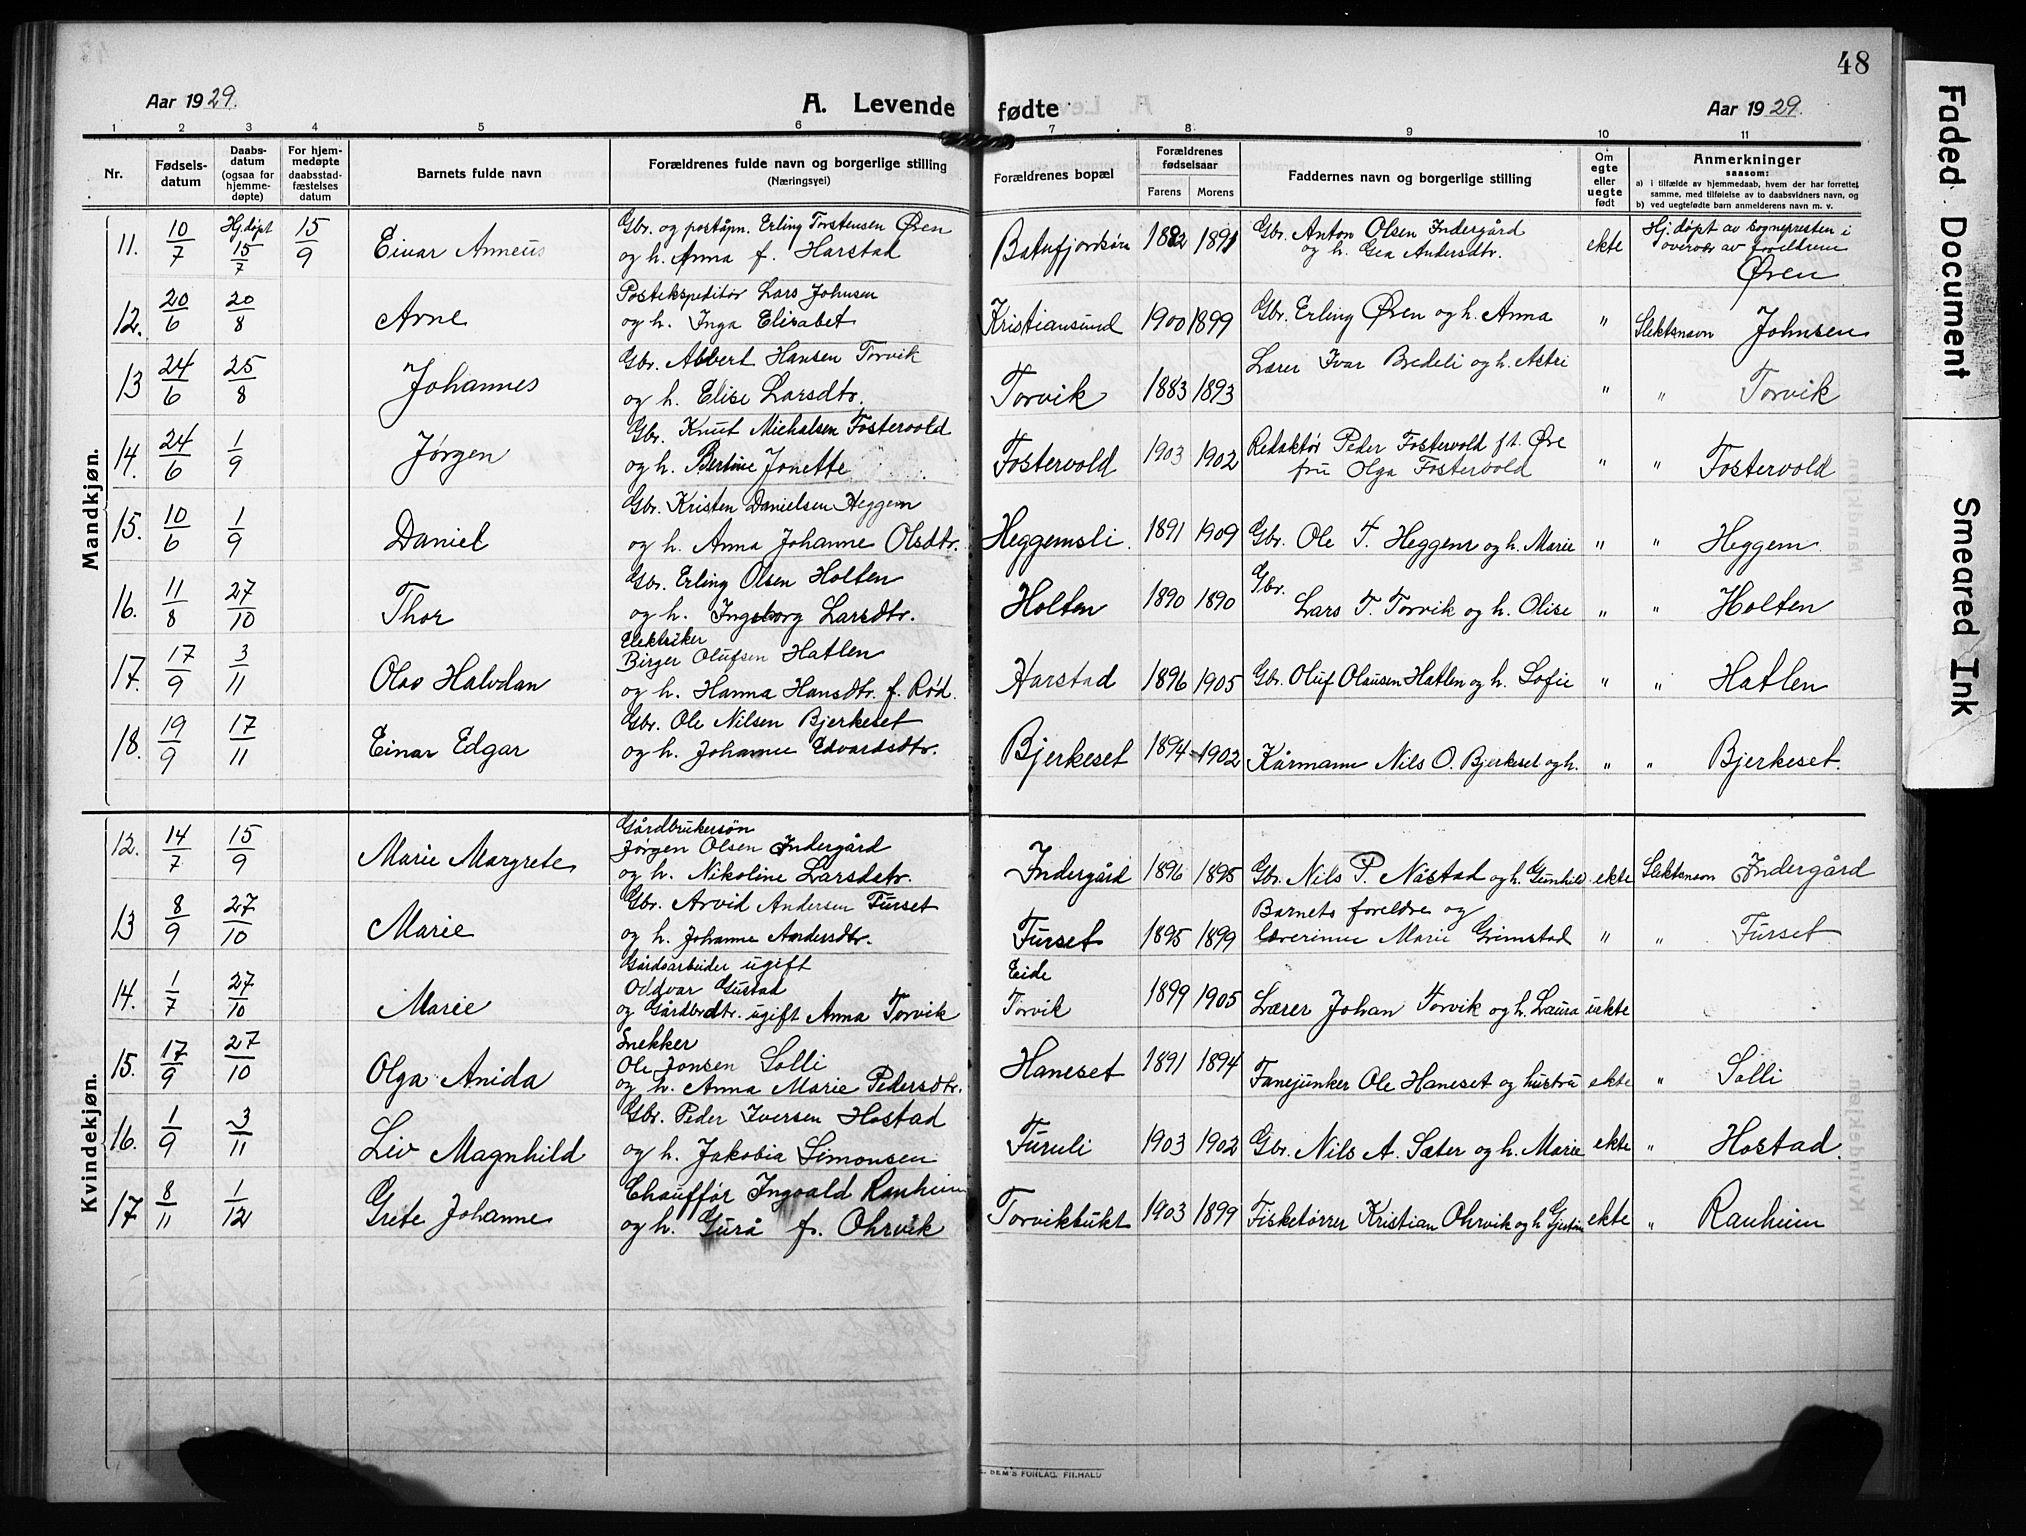 48
Aar 1929.
A. Levende fødte
Aar 1929.
1 2 3 4 5 6 7 8 9 10 11
Nr.
Fødsels-
datum
Daabs-
datum
(ogsaa for
hjemme-
døpte)
For hjem-
medøpte
daabsstad-
fæstelses
datum
Barnets fulde navn
Forældrenes fulde navn og borgerlige stilling
(Næringsvei)
Forældrenes bopæl
Forældrenes
fødselsaar
Farens Morens
Faddernes navn og borgerlige stilling
Om
egte
eller
uegte
født
Anmerkninger
saasom:
a) i tilfælde av hjemmedaab, hvem der har forrettet
samme, med tilføielse av to daabsvidners navn, og
b) ved uegtefødte barn anmelderens navn m. v.
Mandkjøn.
11. 10/7 Hj.døpt 15/7 15/9 Einar Anneus
Gbr. og poståpn. Erling Torstensen Øren
og h. Anna f. Harstad
Batnfjordsøra 1882 1891
Gbr. Anton Olsen Indergård
og h. Gea Andersdtr.
ekte
Hj.døpt av sognepresten i
overvær av foreldrene
Øren
12. 20/6 20/8 Arne
Postekspeditør Lars Johnsen
og h. Inga Elisabet
Kristiansund 1900 1899 Gbr. Erling Øren og h. Anna " Slektsnavn Johnsen
13 24/6 25/8 Johannes
Gbr. Albert Hansen Torvik
og h. Elise Larsdtr.
Torvik 1883 1893 Lærer Ivar Bredeli og h. Astri " " Torvik
14. 24/6 1/9 Jørgen
Gbr. Knut Michalsen Fostervold
og h. Bertine Jonette
Fostervold 1903 1902
Redaktør Peder Fostervold f.t. Øre
fru Olga Fostervold
" " Fostervold
15. 10/6 1/9 Daniel
Gbr. Kristen Danielsen Heggem
og h. Anna Johanne Olsdtr.
Heggemsli. 1891 1909 Gbr. Ole T. Heggem og h. Marie " " Heggem
16. 11/8 27/10 Thor
Gbr. Erling Olsen Holten
og h. Ingeborg Larsdtr.
Holten 1890 1890
Gbr.
Lars T. Torvik og h. Olise " " Holten
17. 17/9 3/11 Olav Halvdan
Elektriker
Birger Olufsen Hatlen
og h. Hanna Hansdtr. f. Rød.
Harstad 1896 1905 Gbr. Oluf Olausen Hatlen og h. Sofie " " Hatlen
18. 19/9 17/11 Einar Edgar
Gbr. Ole Nilsen Bjerkeset
og h. Johanne Edvardsdtr.
Bjerkeset 1894 1902 Kårmann Nils O. Bjerkeset og h. " " Bjerkeset.
Kvindekjøn.
12. 14/7 15/9 Marie Margrete
Gårdbrukersøn
Jørgen Olsen Indergård
og h. Nikoline Larsdtr.
Indergård 1896 1895 Gbr. Nils P. Nåstad og h. Gunhild ekte Slektsnavn Indergård
13 8/9 27/10 Marie
Gbr. Arvid Andersen Furset
og h. Johanne Andersdtr.
Furset 1895 1899
Barnets foreldre og
lærerinne Marie Grimstad
" " Furset
14. 1/7 27/10 Marie
Gårdsarbeider ugift
Oddvar Gustad
og Gårdbrdtr. ugift Anna Torvik
Eide
Torvik
1899 1905 Lærer Johan Torvik og h. Laura uekte
15. 17/9 27/10 Olga Anida
Snekker
Ole Jonsen Solli
og h. Anna Marie Pedersdtr.
Haneset 1891 1894 Fanejunker Ole Haneset og hustru ekte " Solli
16. 1/9 3/11 Liv Magnhild
Gbr. Peder Iversen Hostad
og h. Jakobia Simonsen
Furuli 1903 1902 Gbr. Nils A. Sæter og h. Marie ekte " Hostad.
17 8/11 1/12 Grete Johanne
Chauffør Ingvald Ranheim
og h. Gurå f. Ohrvik
Torvikbukt 1903 1899 Fisketørrer Kristian Ohrvik og h. ekte " Ranheim
Faded Document
Smeared Ink